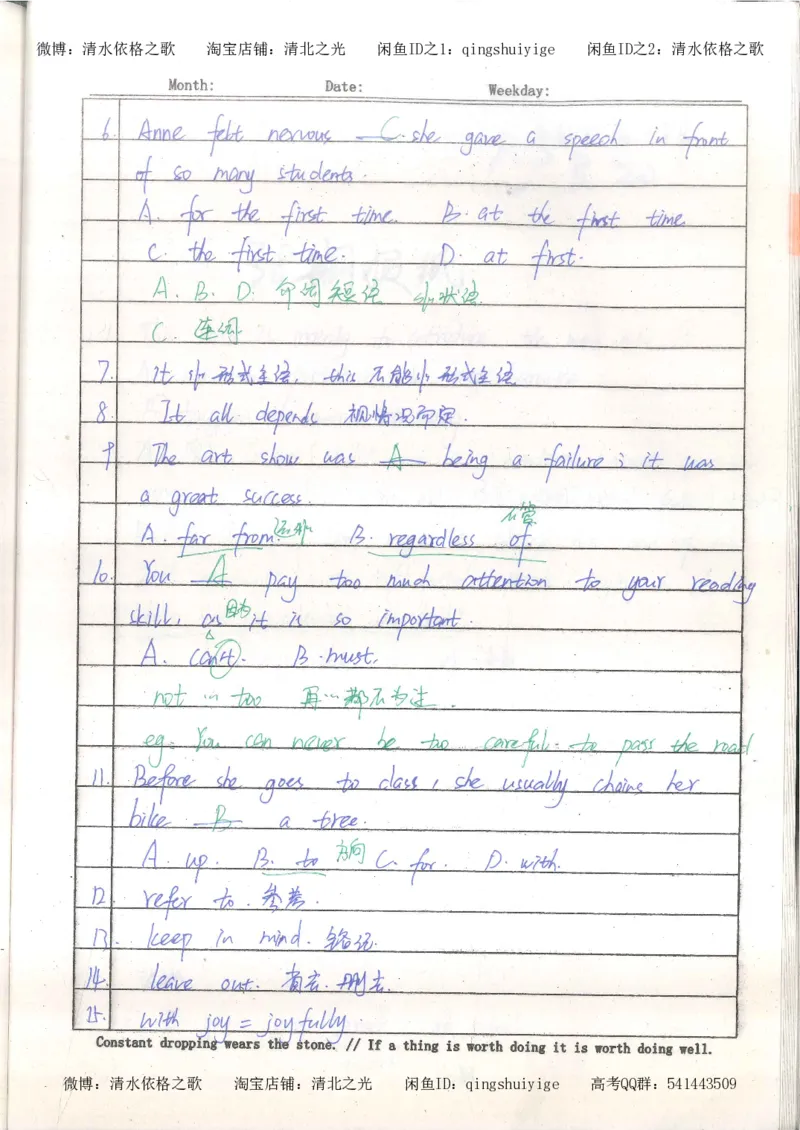 微博：清水依格之歌 淘宝店铺：清北之光 闲鱼ID之1：qingshuiyige 闲鱼ID之2：清水依格之歌
Month: Date: Weekday:
6. Anne felt nervous C. she gave a speech in front
of so many students.
A. for the first time. B. at the first time
C. the first time. D. at first.
A. B. D. 介词短语 作状语.
C. 连词
7. it 作形式主语, this 不能作形式主语
8. It all depends 视情况而定.
9 The art show was A being a failure; it was
a great success.
不管
A. far from 远非 B. regardless of.
10. You A pay too much attention to your reading
skill, as 因为 it is so important.
A. can't. B. must.
not … too 再…都不为过.
eg. You can never be too careful to pass the road.
11. Before she goes to class, she usually chains her
bike B a tree.
A. up. B. to 方向 C. for. D. with.
12. refer to. 参考.
13. keep in mind. 铭记.
14. leave out. 省去. 删去.
15. with joy = joyfully.
Constant dropping wears the stone. // If a thing is worth doing it is worth doing well.
微博：清水依格之歌 淘宝店铺：清北之光 闲鱼ID：qingshuiyige 高考QQ群：541443509